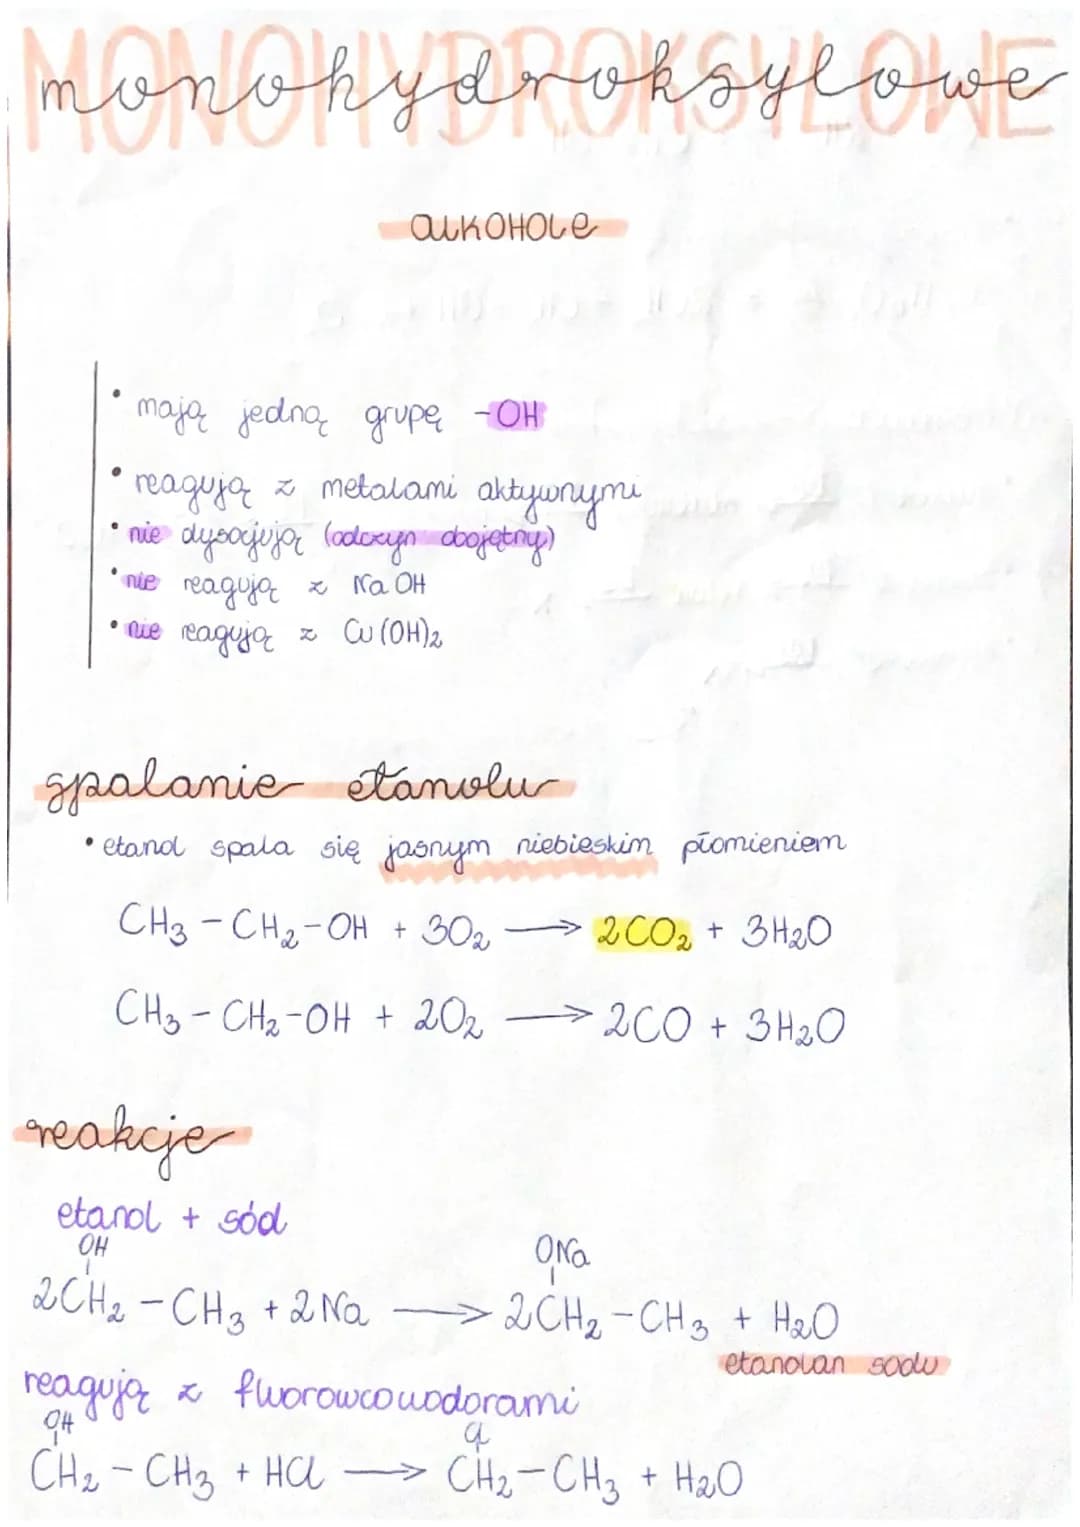 MONOHYDROKSYLOWE
monohydroksylowe
alkohole
• mają jedną grupę -OH
• reagują z metalami aktywnymi
• nie dysocjują (odczyn obojętny)
• nie reagują z NaOH
• nie reagują z Cu(OH)2
spalanie etanolu
• etanol spala się jasnym niebieskim płomieniem
CH3 - CH2 - OH + 3O2 → 2CO2 + 3H2O
CH3 - CH2 - OH + 2O2 → 2CO + 3H2O
reakcje
etanol + sód
OH ONa
2CH2 - CH3 + 2Na → 2CH2 - CH3 + H2O
etanolan sodu
reagują z fluorowcowodorami
OH Cl
CH2 - CH3 + HCl → CH2 - CH3 + H2O